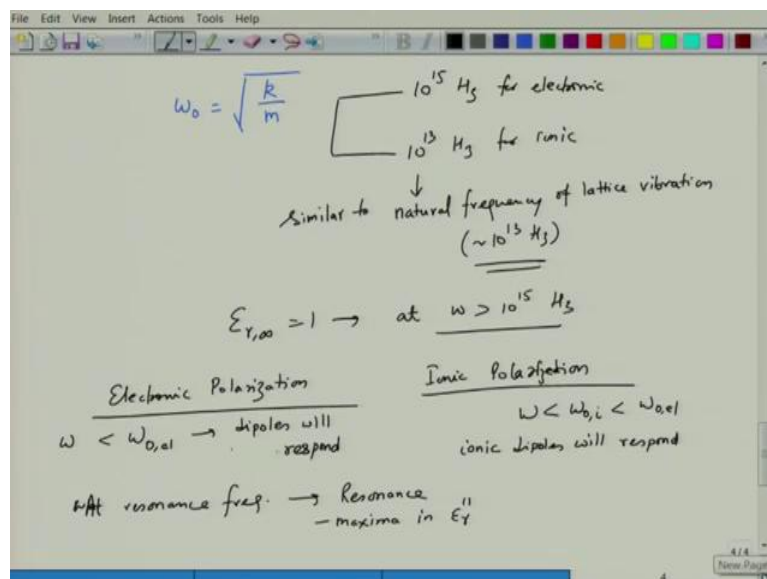 File Edit View Insert Actions Tools Help
B I
ω₀ = √(k/m)
10¹⁵ Hz for electronic
10¹³ Hz for ionic
↓
Similar to natural frequency of lattice vibration
(~10¹³ Hz)
Ɛr,∞ = 1 → at ω > 10¹⁵ Hz
Electronic Polarization
ω < ω₀,el → dipoles will
respond
Ionic Polarization
ω < ω₀,i < ω₀,el
ionic dipoles will respond
At resonance freq. → Resonance
– maxima in Ɛr''
4/4
New Page